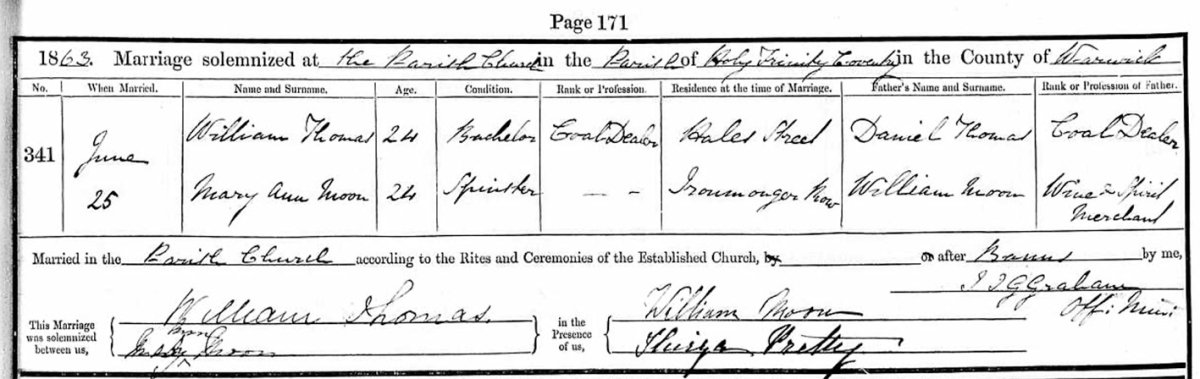 Page 171
1863. Marriage solemnized at the Parish Church in the Parish of Holy Trinity Coventry in the County of Warwick
No. When Married. Name and Surname. Age. Condition. Rank or Profession. Residence at the time of Marriage. Father's Name and Surname. Rank or Profession of Father.
William Thomas 24 Bachelor Coal Dealer Hales Street Daniel Thomas Coal Dealer
341 June
25 Mary Ann Moon 24 Spinster — — Ironmonger Row William Moon Wine & Spirit
Merchant
Married in the Parish Church according to the Rites and Ceremonies of the Established Church, by or after Banns by me,
J J G Graham
Off: Min:
This Marriage was solemnized between us,
William Thomas
Mary Ann Moon
in the Presence of us,
William Moon
Pretty